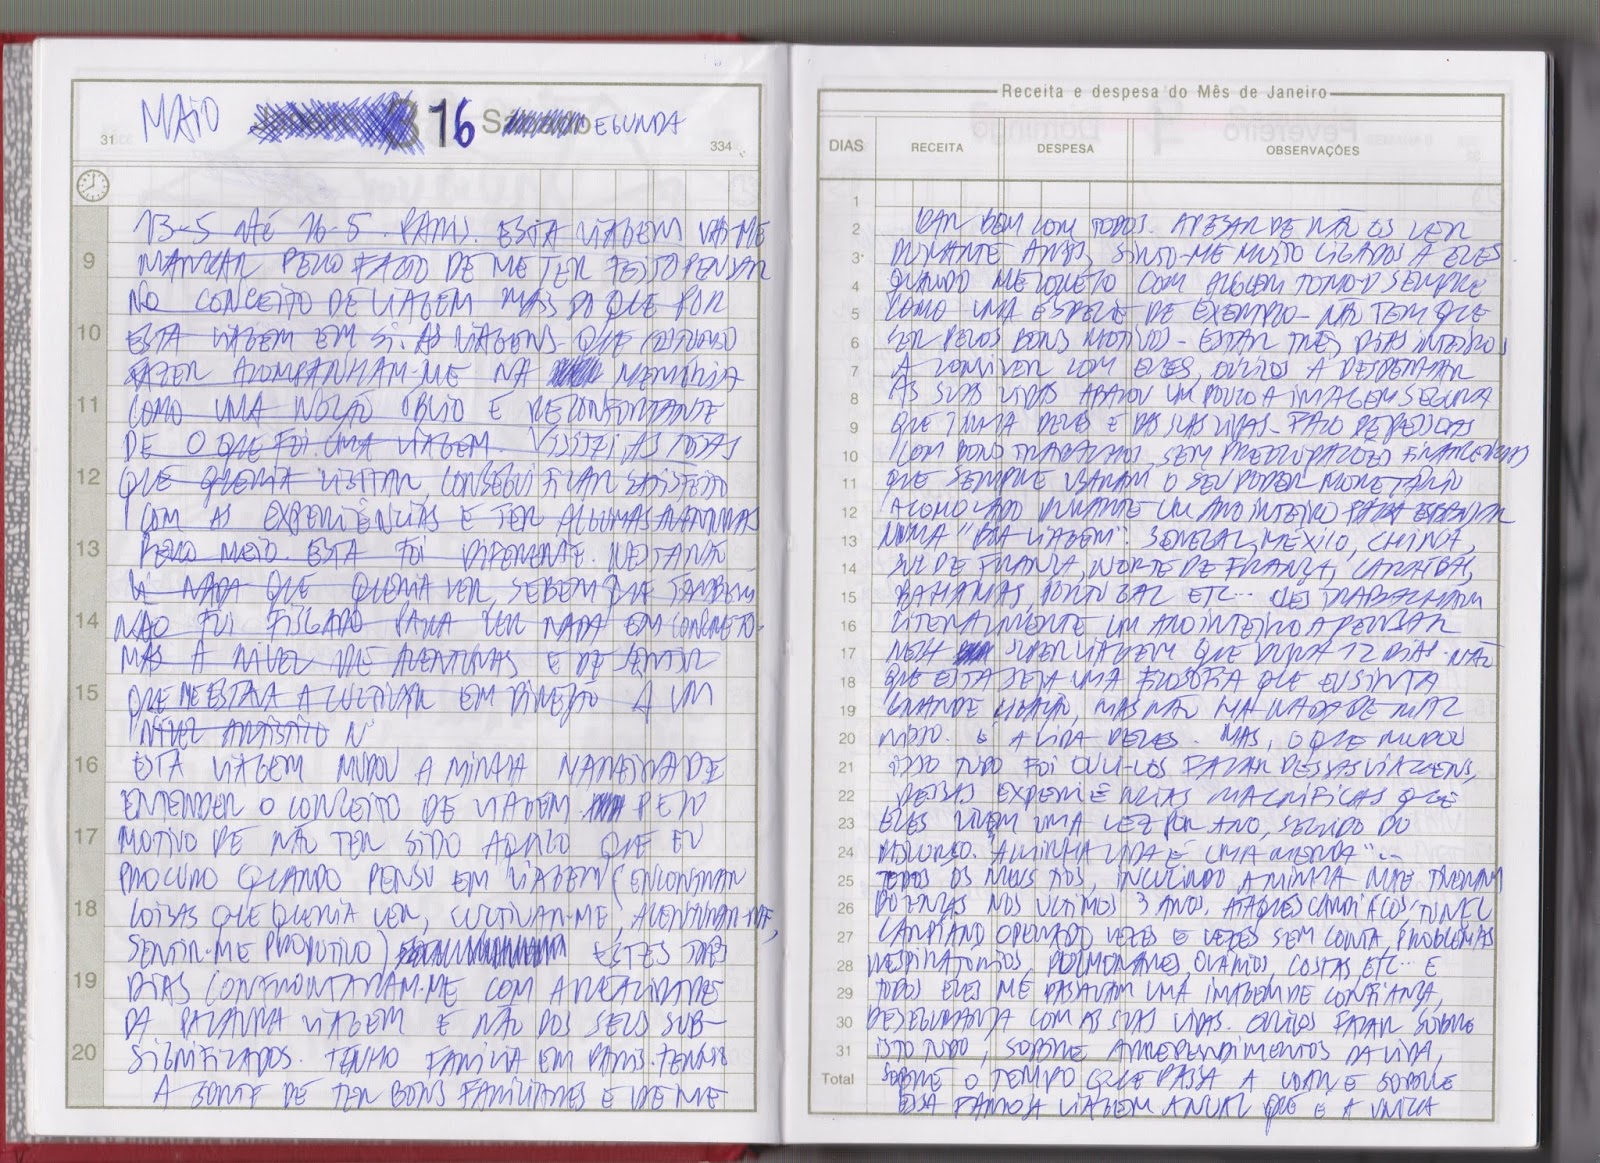 MAIO 16 SEGUNDA
31 334
13-5 ATÉ 16-5. PARIS. ESTA VIAGEM VAI-ME
MARCAR PELO FACTO DE ME TER FEITO PENSAR
NO CONCEITO DE VIAGEM MAIS DO QUE POR
ESTA VIAGEM EM SI. AS VIAGENS QUE COSTUMO
FAZER ACOMPANHAM-ME NA MEMÓRIA
COMO UMA NOÇÃO ÓBVIO E RECONFORTANTE
DE O QUE FOI UMA VIAGEM. VISITEI AS COISAS
QUE QUERIA VISITAR, CONSEGUI FICAR SATISFEITO
COM AS EXPERIÊNCIAS E TER ALGUMAS AVENTURAS
PELO MEIO. ESTA FOI DIFERENTE. NESTA NÃO
VI NADA QUE QUERIA VER, SE BEM QUE TAMBÉM
NÃO FUI FISGADO PARA VER NADA EM CONCRETO.
MAS A NÍVEL DE AVENTURAS E DE SENTIR
QUE ME ESTAVA A CULTIVAR EM DIREÇÃO A UM
NÍVEL ARTÍSTICO N
ESTA VIAGEM MUDOU A MINHA MANEIRA DE
ENTENDER O CONCEITO DE VIAGEM PELO
MOTIVO DE NÃO TER SIDO AQUILO QUE EU
PROCURO QUANDO PENSO EM VIAGEM (ENCONTRAR
COISAS QUE QUERIA VER, CULTIVAR-ME, AVENTURAR-ME,
SENTIR-ME PRODUTIVO) ESTES TRÊS
DIAS CONFRONTARAM-ME COM A REALIDADE
DA PALAVRA VIAGEM E NÃO DOS SEUS SUB-
SIGNIFICADOS. TENHO FAMÍLIA EM PARIS. TENHO
A SORTE DE TER BONS FAMILIARES E DE ME
9
10
11
12
13
14
15
16
17
18
19
20
Receita e despesa do Mês de Janeiro
DIAS RECEITA DESPESA OBSERVAÇÕES
1
2 DAR BEM COM TODOS. APESAR DE NÃO OS VER
3 DURANTE ANOS, SINTO-ME MUITO LIGADOS A ELES.
4 QUANDO ME CONECTO COM ALGUEM TOMO-O SEMPRE
5 COMO UMA ESPÉCIE DE EXEMPLO - NÃO TEM QUE
6 SER PELOS BONS MOTIVOS - ESTAR TRÊS DIAS INTEIROS
7 A CONVIVER COM ELES, OUVI-LOS A DESABAFAR
8 AS SUAS VIDAS ABALOU UM POUCO A IMAGEM SEGURA
9 QUE TINHA DELES E DAS SUAS VIDAS. FALO DE PESSOAS
10 COM BONS TRABALHOS, SEM PREOCUPAÇÕES FINANCEIRAS
11 QUE SEMPRE USARAM O SEU PODER MONETÁRIO
12 ACUMULADO DURANTE UM ANO INTEIRO PARA ESBANJAR
13 NUMA "BOA VIAGEM". SENEGAL, MÉXICO, CHINA,
14 SUL DE FRANÇA, NORTE DE FRANÇA, CARAÍBAS,
15 BAHAMAS, PORTUGAL ETC... ELES TRABALHAM
16 LITERALMENTE UM ANO INTEIRO A PENSAR
17 NESSA SUPER VIAGEM QUE DURA 12 DIAS. NÃO
18 QUE ESTA SEJA UMA FILOSOFIA QUE EU SINTA
19 GRANDE LIGAÇÃO, MAS NÃO HÁ NADA DE MAL
20 NISSO. É A VIDA DELES. MAS, O QUE MUDOU
21 ISSO TUDO FOI OUVI-LOS FALAR DESSAS VIAGENS,
22 DESSAS EXPERIÊNCIAS MAGNÍFICAS QUE
23 ELES VIVEM UMA VEZ POR ANO, SEGUIDO DO
24 DISCURSO. "A MINHA VIDA É UMA MERDA"...
25 TODOS OS MEUS TIOS, INCLUINDO A MINHA MÃE TIVERAM
26 DOENÇAS NOS ULTIMOS 3 ANOS. ATAQUES CARDÍACOS, TUNEL
27 CARPIANO OPERADO VEZES E VEZES SEM CONTA, PROBLEMAS
28 RESPIRATORIOS, PULMONARES, OVÁRIOS, COSTAS, ETC... E
29 TODOS ELES ME PASSAVAM UMA IMAGEM DE CONFIANÇA,
30 DE SEGURANÇA COM AS SUAS VIDAS. OUVI-LOS FALAR SOBRE
31 ISTO TUDO, SOBRE ARREPENDIMENTOS DA VIDA,
Total SOBRE O TEMPO QUE PASSA A VOAR E SOBRE
ESSA FAMOSA VIAGEM ANUAL QUE É A UNICA